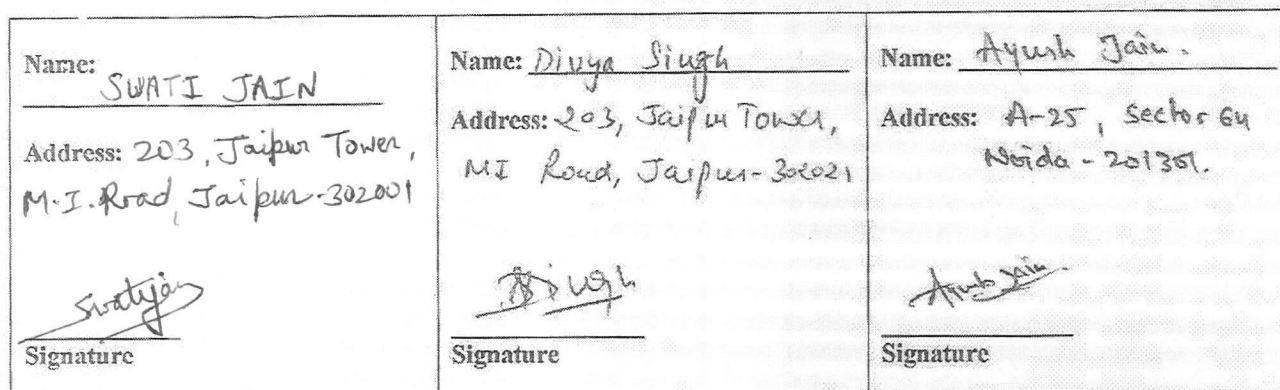 Name:
SWATI JAIN
Address: 203, Jaipur Tower,
M.I. Road, Jaipur-302001
Signature
Name: Divya Singh
Address: 203, Jaipur Tower,
MI Road, Jaipur-302021
Signature
Name: Ayush Jain.
Address: A-25, Sector 64
Noida - 201301
Ayush Jain
Signature